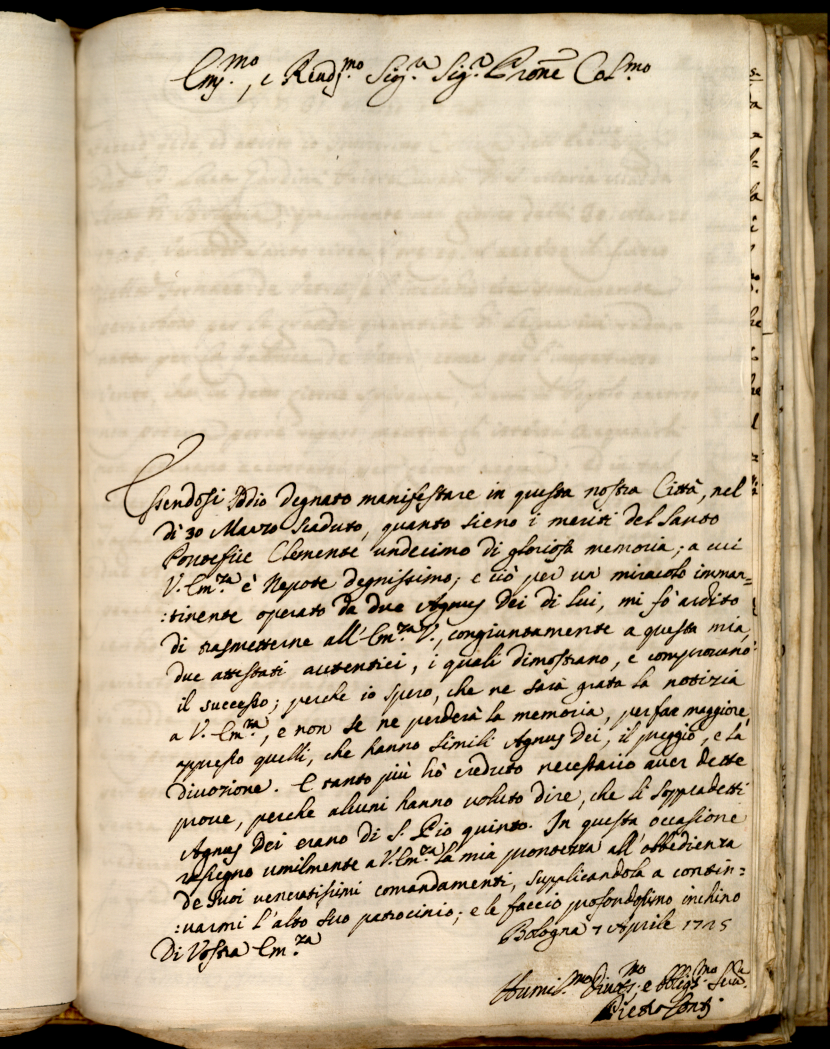 Em̃.mo, e Reud.mo Sig.r Sig.r Prone Col.mo
Essendosi Iddio degnato manifestare in questa nostra Città, nel
dì 30 Marzo scaduto, quanto sieno i meriti del Santo
Pontefice Clemente undecimo di gloriosa memoria; a cui
V. Em.za è Nepote degnissimo; e ciò per un miracolo imman=
:tinente operato da due Agnus Dei di lui, mi fò ardito
di trasmetterne all'Em.za V., congiuntamente a questa mia,
due attestati autentici, i quali dimostrano, e comprovano
il successo; perche io spero, che ne sarà grata la notizia
a V. Em.za, e non se ne perderà la memoria, per far maggiore,
appresso quelli, che hanno simili Agnus Dei, il preggio, e la
divozione. E tanto più hò creduto necessario aver dette
prove, perche alcuni hanno voluto dire, che li sopradetti
Agnus Dei erano di S. Pio quinto. In questa occasione
rassegno umilmente a V. Em.za la mia prontezza all'obbedienza
de suoi veneratissimi comandamenti, supplicandola a contin=
:uarmi l'alto suo patrocinio; e le faccio profondissimo inchino
Bologna 7 Aprile 1725
Di Vostra Em.za
Humil.mo Diuot.mo e Obligt.mo Seru.
Pietro Conti